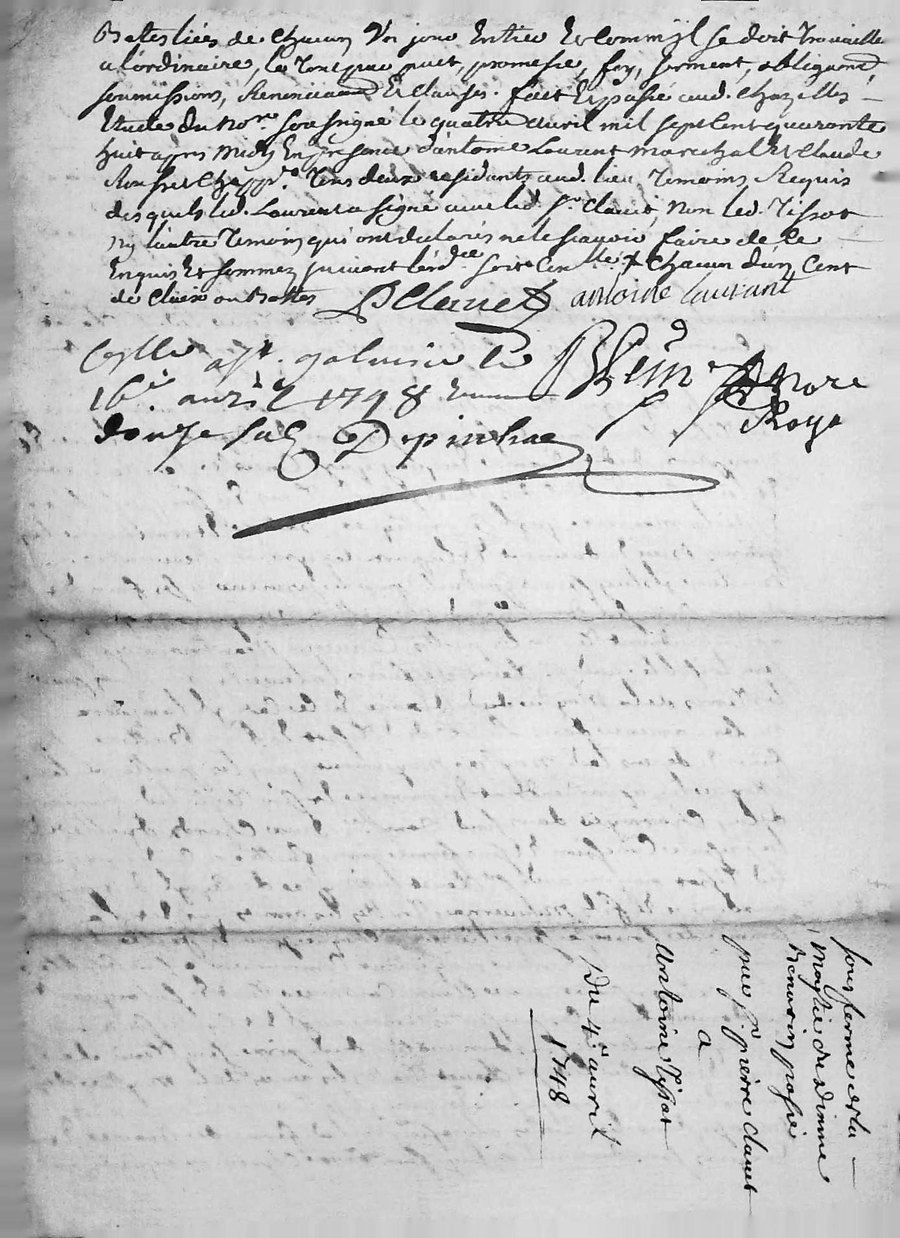 Bottes liées de chacun Un jour Entier Et Comm'jl se doit Travaille
a l'ordinaire, le Tout par pact, promesse, foy, serment, obligaons
soumissions, Renonciaons Et Clauses. fait Et passé aud. Chazelles
Etude du Nore. soussigné le quatre avril mil sept Cent quarante
huit apres midy En presence d'antoine Laurent marechal Et Claude
Tous deux residants aud. lieu Temoins Requis
desquels led. Laurent a signé avec led. Sr. Clavet, Non led. Tissot
ny l'autre Temoin qui ont declarés ne le sçavoir faire de ce
Enquis Et sommez suivant l'ordce. chacun d'un Cent
de ou Bottes
PClavet antoide laurant
a St. galmier le
16e. avril 1748
douze sols Depinhac
Nore
Royal
sous ferme de la
moytié du dixme
passée
par Sr. pierre clavet
a
Antoine Tissot
Du 4e avril
1748